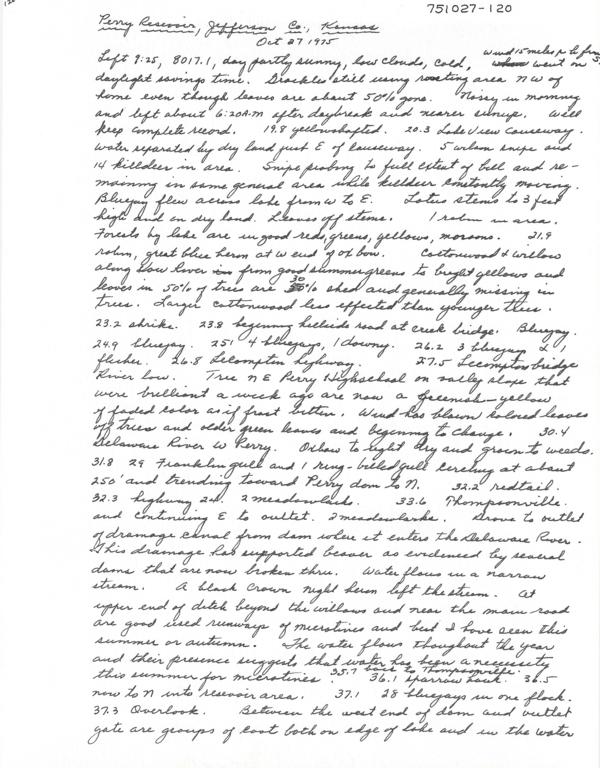 751027-120
Perry Reservoir, Jefferson Co., Kansas
Oct 27 1975
wind 15 miles p h from
Left 9:25, 8017.1, day partly sunny, low clouds, cold, went on
daylight savings time. Grackles still using roosting area NW of
home even though leaves are about 50% gone. Noisy in morning
and left about 6:20 A.M after daybreak and nearer sunup. Will
keep complete record. 19.8 yellowshafted. 20.3 Lake View Causeway.
Water separated by dry land just E of causeway. 5 wilson snipe and
14 killdeer in area. Snipe probing to full extent of bill and re-
maining in same general area while killdeer constantly moving.
Bluejay flew across lake from W to E. Lotus stems to 3 feet
high and on dry land. Leaves off stems. 1 robin in area.
Forests by lake are in good reds, greens, yellows, maroons. 21.9
robin, great blue heron at W end of ox bow. Cottonwood & willow
along Kaw River from good summer greens to bright yellows and
leaves in 50% of trees are 30% shed and generally missing in
trees. Larger cottonwood less effected than younger trees.
23.2 shrike. 23.8 beginning hillside road at creek bridge. Bluejay.
24.9 bluejay. 25.1 4 bluejays, 1 downy. 26.2 3 bluejays, 1
flicker. 26.8 Lecompton highway. 27.5 Lecompton bridge
River low. Tree N E Perry Highschool on valley slope that
were brilliant a week ago are now a greenish-yellow
of faded color as if frost bitten. Wind has blown colored leaves
off trees and older green leaves and beginning to change. 30.4
Delaware River W Perry. Oxbow to right dry and grown to weeds.
31.8 29 Franklin gull and 1 ring-billed gull circling at about
250' and trending toward Perry dam to N. 32.2 redtail.
32.3 highway 24. 2 meadowlarks. 33.6 Thompsonville.
and continuing E to outlet. 2 meadowlarks. Drove to outlet
of drainage canal from dam where it enters the Delaware River.
This drainage has supported beaver as evidenced by several
dams that are now broken thru. Water flows in a narrow
stream. A black crown night heron left the stream. At
upper end of ditch beyond the willows and near the main road
are good used runways of microtines and best I have seen this
summer or autumn. The water flows thoughout the year
and their presence suggests that water has been a necessity
this summer for microtines. 35.7 back to Thompsonville. 36.1 sparrow hawk. 36.5
now to N into resevoir area. 37.1 28 bluejays in one flock.
37.3 Overlook. Between the west end of dam and outlet
gate are groups of coot both on edge of lake and in the water